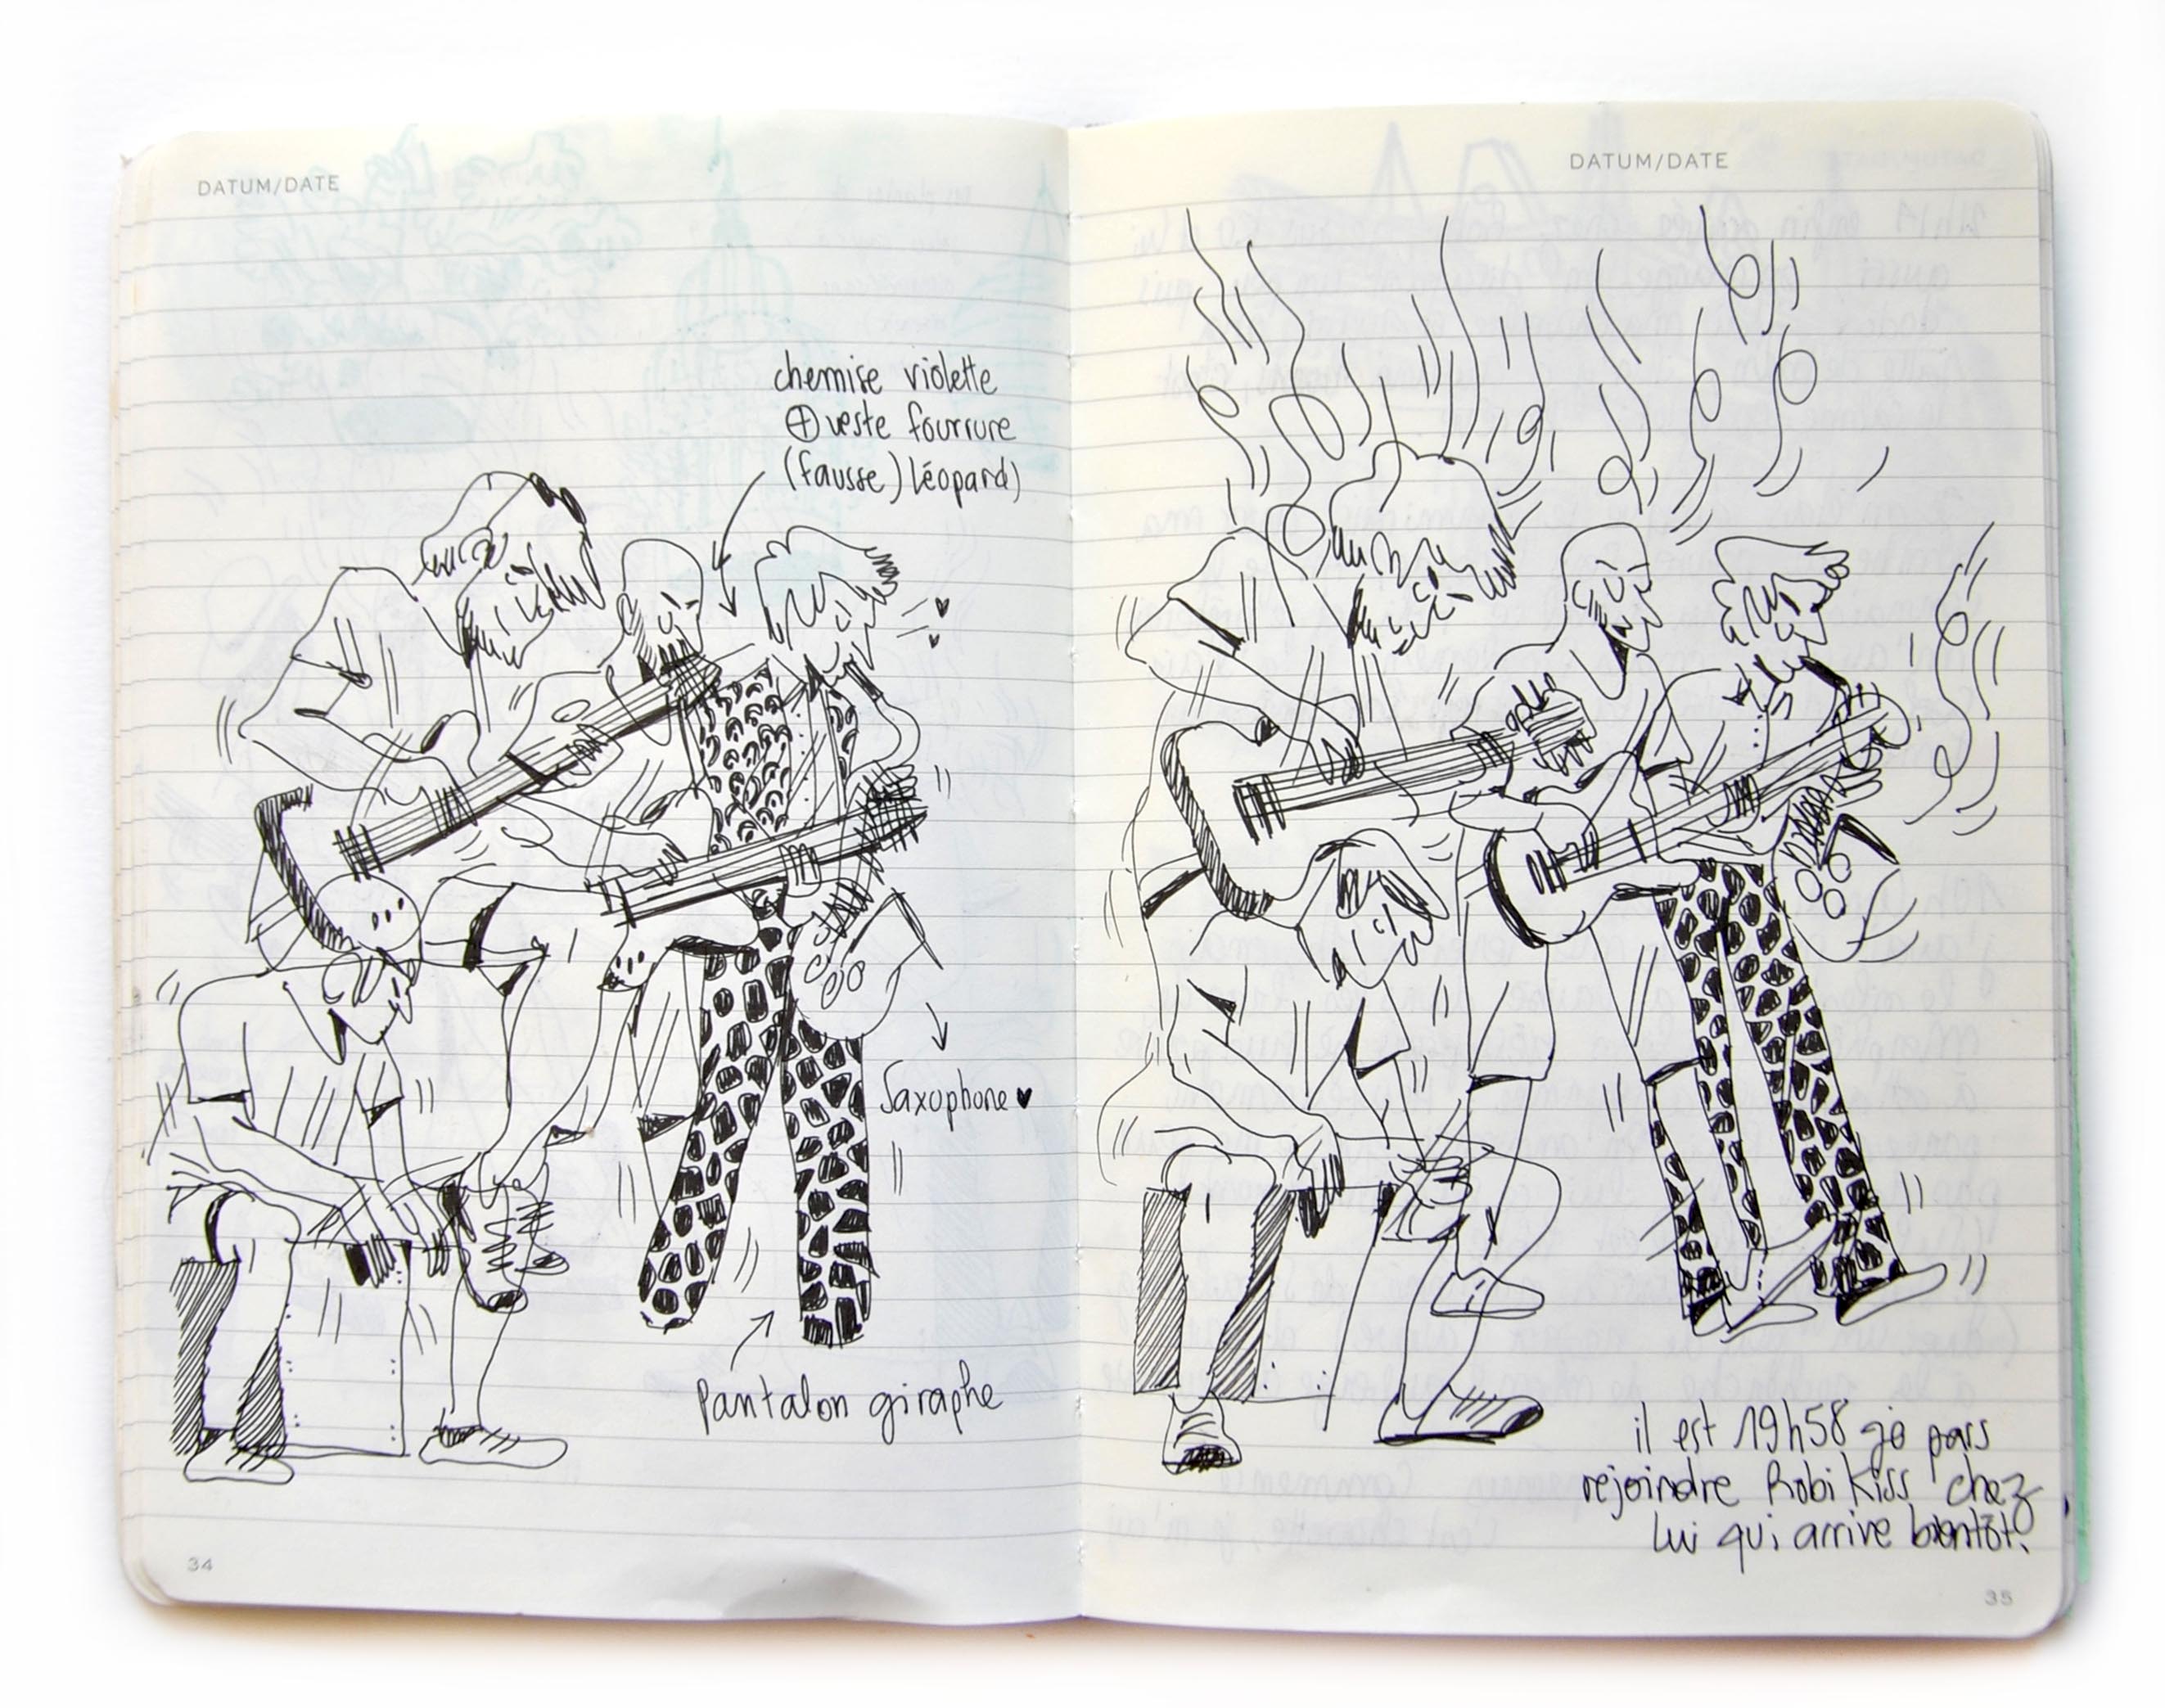 DATUM/DATE
chemise violette
⊕ veste fourrure
(fausse) léopard)
Saxophone ♥
Pantalon giraphe
34
DATUM/DATE
il est 19h58 je pars
rejoindre Robi Kiss chez
lui qui arrive bientôt.
35